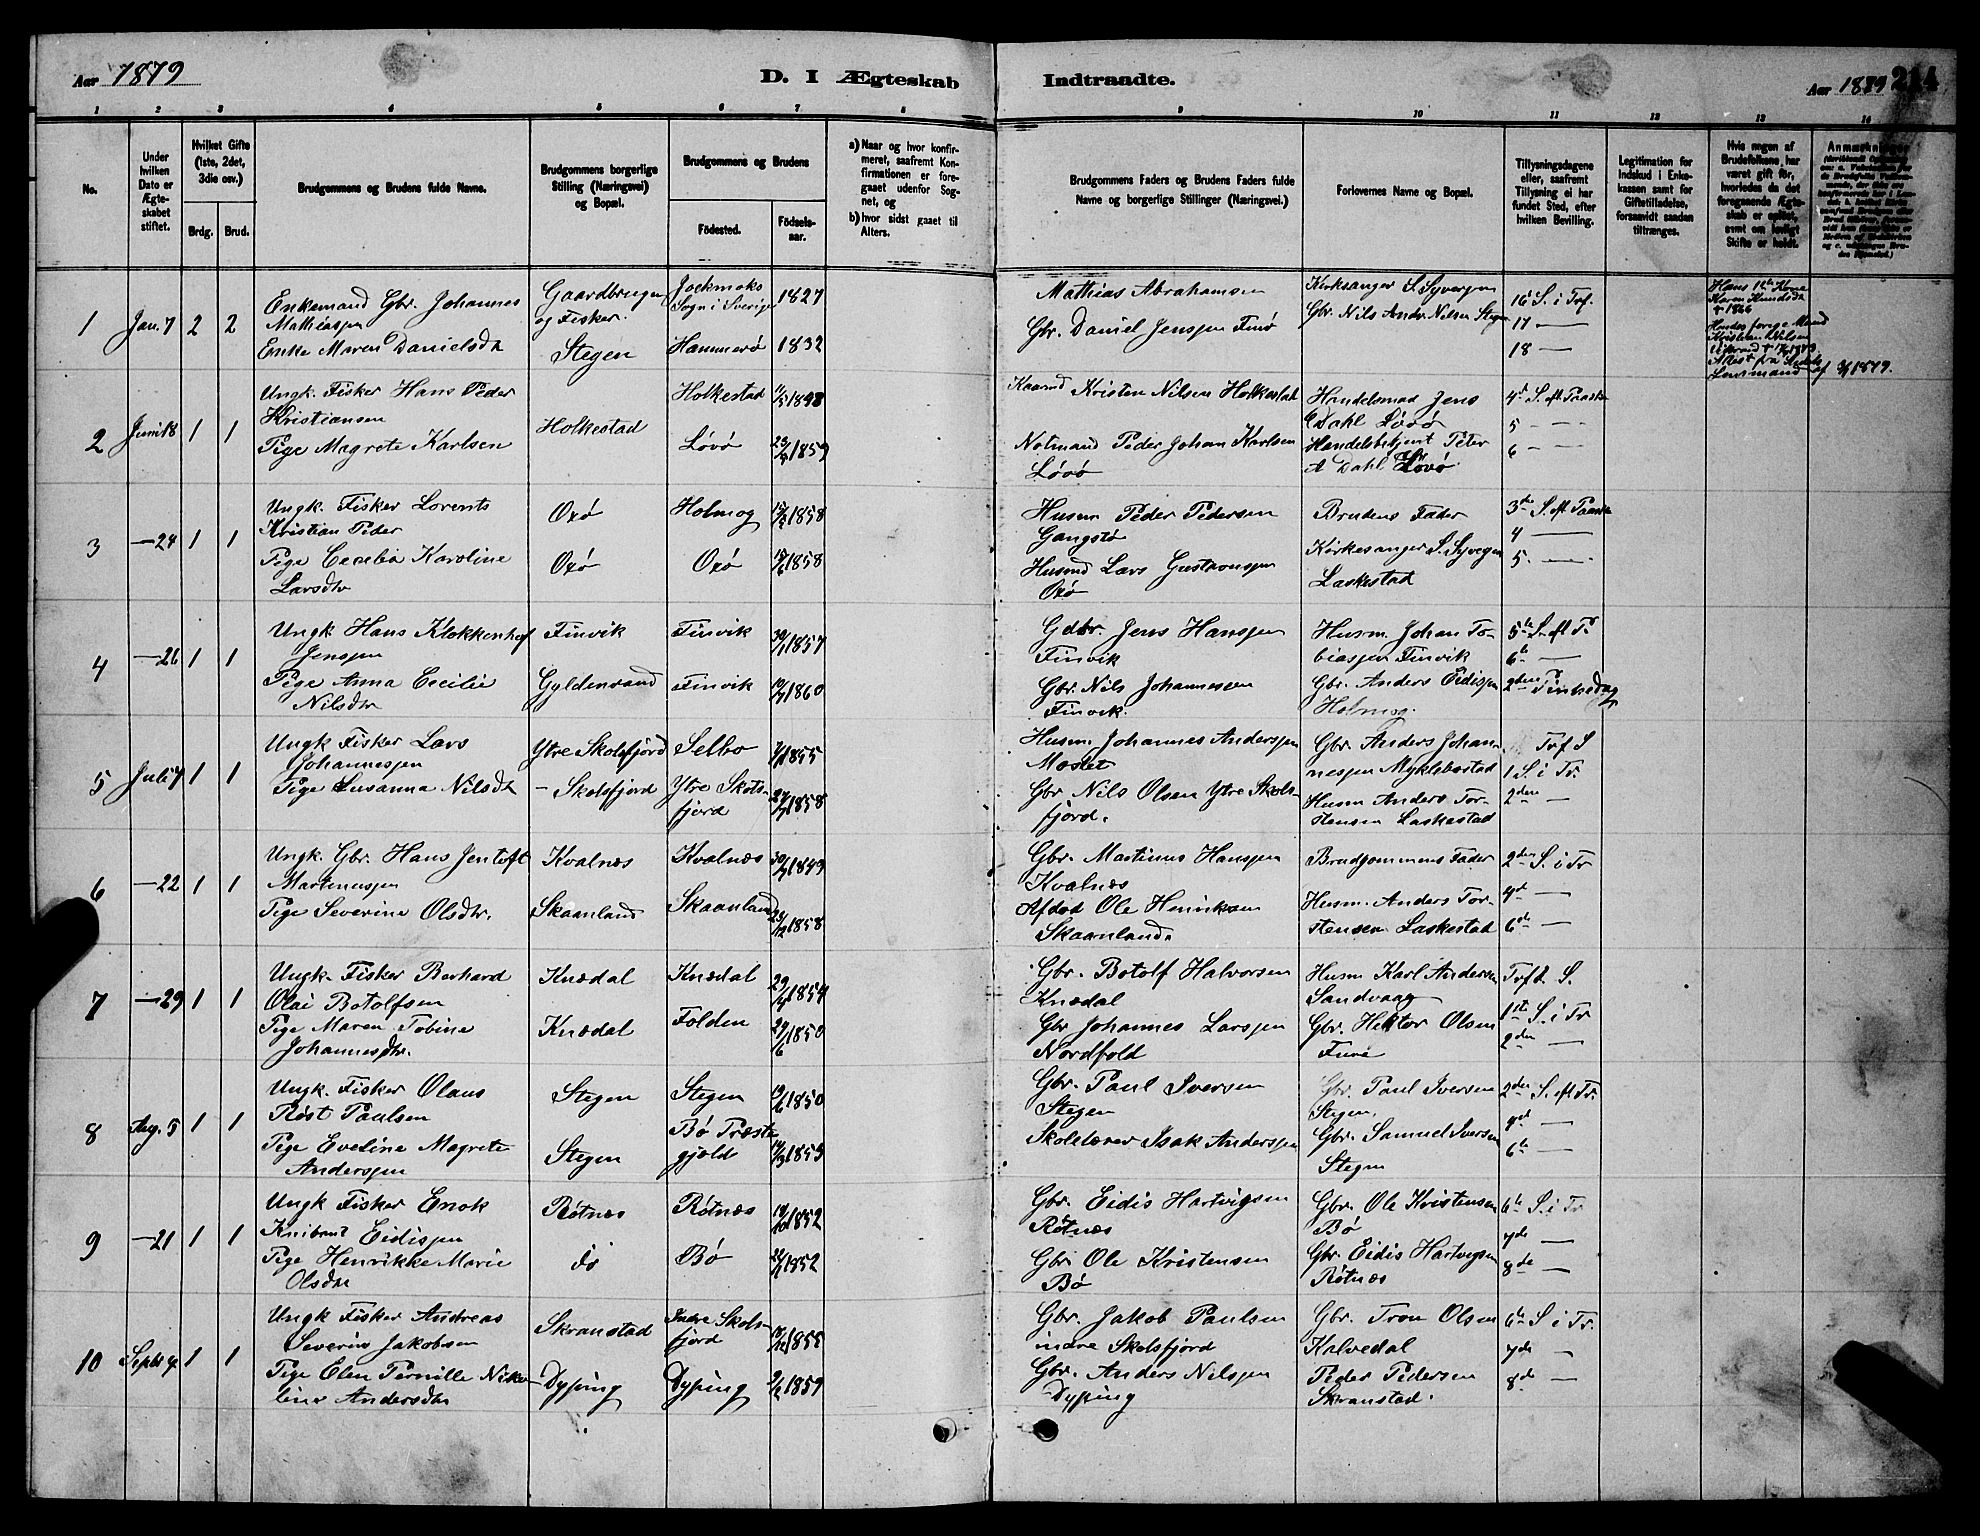 Aar 1879
D. I Ægteskab
Indtraadte.
Aar 1879
214
1 2 3 4 5 6 7 8 9 10 11 12 13 14
No.
Under hvilken Dato er Ægteskabet stiftet.
Hvilket Gifte (1ste, 2det, 3die osv.)
Brdg. Brud.
Brudgommens og Brudens fulde Navne.
Brudgommens borgerlige Stilling (Næringsvei) og Bopæl.
Brudgommens og Brudens
Födested.
Födselsaar.
a) Naar og hvor konfirmeret, saafremt Konfirmationen er foregaaet udenfor Sognet, og
b) hvor sidst gaaet til Alters.
Brudgommens Faders og Brudens Faders fulde Navne og borgerlige Stillinger (Næringsvei.)
Forlovernes Navne og Bopæl.
Tillysningsdagene eller, saafremt Tillysning ei har fundet Sted, efter hvilken Bevilling.
Legitimation for Indskud i Enkekassen samt for Giftetilladelse, forsaavidt saadan tiltrænges.
Hvis nogen af Brudefolkene har været gift för, hvorledes da det foregaaende Ægteskab er oplöst, samt om lovligt Skifte er holdt.
1 Jan. 7 2 2
Enkemand Gbr. Johannes
Mathiassen
Enke Maren Danielsdtr
Gaardbruger
og Fisker
Stegen
Jockmoks
Sogn i Sverige 1827
Hammerø 1832
Mathias Abrahamsen
Gbr. Daniel Jenssen Finø
Kirksanger S. Syversen
Gbr. Nils Andr. Nilsen Stegen
16 S. i Tref.
17 —
18 —
Hans 1ste Kone
Karen Knudsdtr
† 1866
Hendes forrige Mand
Kristian Nilsen
Attest fra
Lensmand 1879.
2 Juni 18 1 1
Ungk. Fisker Hans Peder
Kristiansen
Pige Magrete Karlsen
Holkestad
Holkestad 11/5 1848
Løvø 23/7 1859
Kaarmd Kristen Nilsen Holkestad
Notmand Peder Johan Karlsen
Løvø
Handelsmad Jens
Dahl Løvø
Handelsbetjent Peter
A Dahl Løvø
4d S. eft. Paaske
5 —
6 —
3 — 24 1 1
Ungk. Fisker Lorents
Kristian Peder
Pige Cecelia Karoline
Larsdtr
Oxø
Oxø
Holmog 1858
Oxø 1858
Husm Peder Pedersen
Gangstø
Husmd Lars Gustavssen
Oxø
Brudens Fader
Kirkesanger S. Syversen
Laskestad
3de S. eft Paaske
4 —
5 —
4 — 26 1 1
Ungk. Hans Klokkenhof
Jenssen
Pige Anna Cecilie
Nilsdtr
Finvik
Gyldenvand
Finvik 1857
Finvik 1860
Gdbr. Jens Hanssen
Finvik
Gbr. Nils Johannessen
Finvik.
Husm. Johan To-
biassen Finvik
Gbr. Anders Eidissen
Holmog.
5te S. eft P.
6te —
2den Pinsedag
5 Juli 7 1 1
Ungk Fisker Lars
Johannessen
Pige Susanna Nilsdtr
Ytre Skolsfjord
— Skolsfjord
Selbo 1855
Ytre Skols-
fjord 1858
Husm. Johannes Anderssen
Moslet
Gbr Nils Olsen Ytre Skols-
fjord.
Gbr. Anders Johan-
nessen Myklebostad
Husm Anders Tor-
stensen Laskestad
Tref S
1 S. i Tr.
2den —
6 — 22 1 1
Ungk. Gbr. Hans Jentoft
Martinussen
Pige Severine Olsdtr.
Kvalnæs
Skaanland
Kvalnæs 1849
Skaanland 1858
Gbr. Martinus Hanssen
Kvalnæs
Afdød Ole Henriksen
Skaanland.
Brudgommens Fader
Husm. Anders Tor-
stensen Laskestad
2den S. i Tr
4d —
6te —
7 — 29 1 1
Ungk. Fisker Berhard
Olai Botolfsen
Pige Maren Tobine
Johannesdtr.
Knædal
Knædal
Knædal 29/4 1854
Folden 1850
Gbr. Botolf Halvorsen
Knædal
Gbr Johannes Larssen
Nordfold
Husm Karl Andersen
Sandvaag
Gbr. Hektor Olsen
Furø
Tref. S.
1ste S. i Tr
2den —
8 Aug. 5 1 1
Ungk. Fisker Olaus
Røst Paulsen
Pige Eveline Magrete
Anderssen
Stegen
Stegen
Stegen 1850
Bø Præste
gjeld 1859
Gbr. Paul Iversen
Stegen
Skolelærer Isak Anderssen
Gbr. Paul Iversen
Stegen.
Gbr. Samuel Iversen
Stegen
2den S. eft Tr.
4d —
6te —
9 — 21 1 1
Ungk Fisker Enok
Knibrant Eidissen
Pige Henrikke Marie
Olsdtr
Røtnæs
do
Røtnæs 1852
Bø 1852
Gbr. Eidis Hartvigsen
Røtnæs
Gbr. Ole Kristensen
Bø
Gbr. Ole Kristensen
Bø
Gbr. Eidis Hartvigsen
Røtnæs
6te S. i Tr
7de —
8de —
10 Septr 4 1 1
Ungk Fisker Andreas
Severin Jakobsen
Pige Olen Pernille Niko-
line Andersdtr
Skranstad
Dyping
Indre Skols-
fjord 1855
Dyping 1859
Gbr. Jakob Paulsen
indre Skolsfjord
Gbr. Anders Nilssen
Dyping
Gbr. Tron Olsen
Kalvedal
Peder Pedersen
Skranstad.
6te S. i Tr.
7de —
8de —